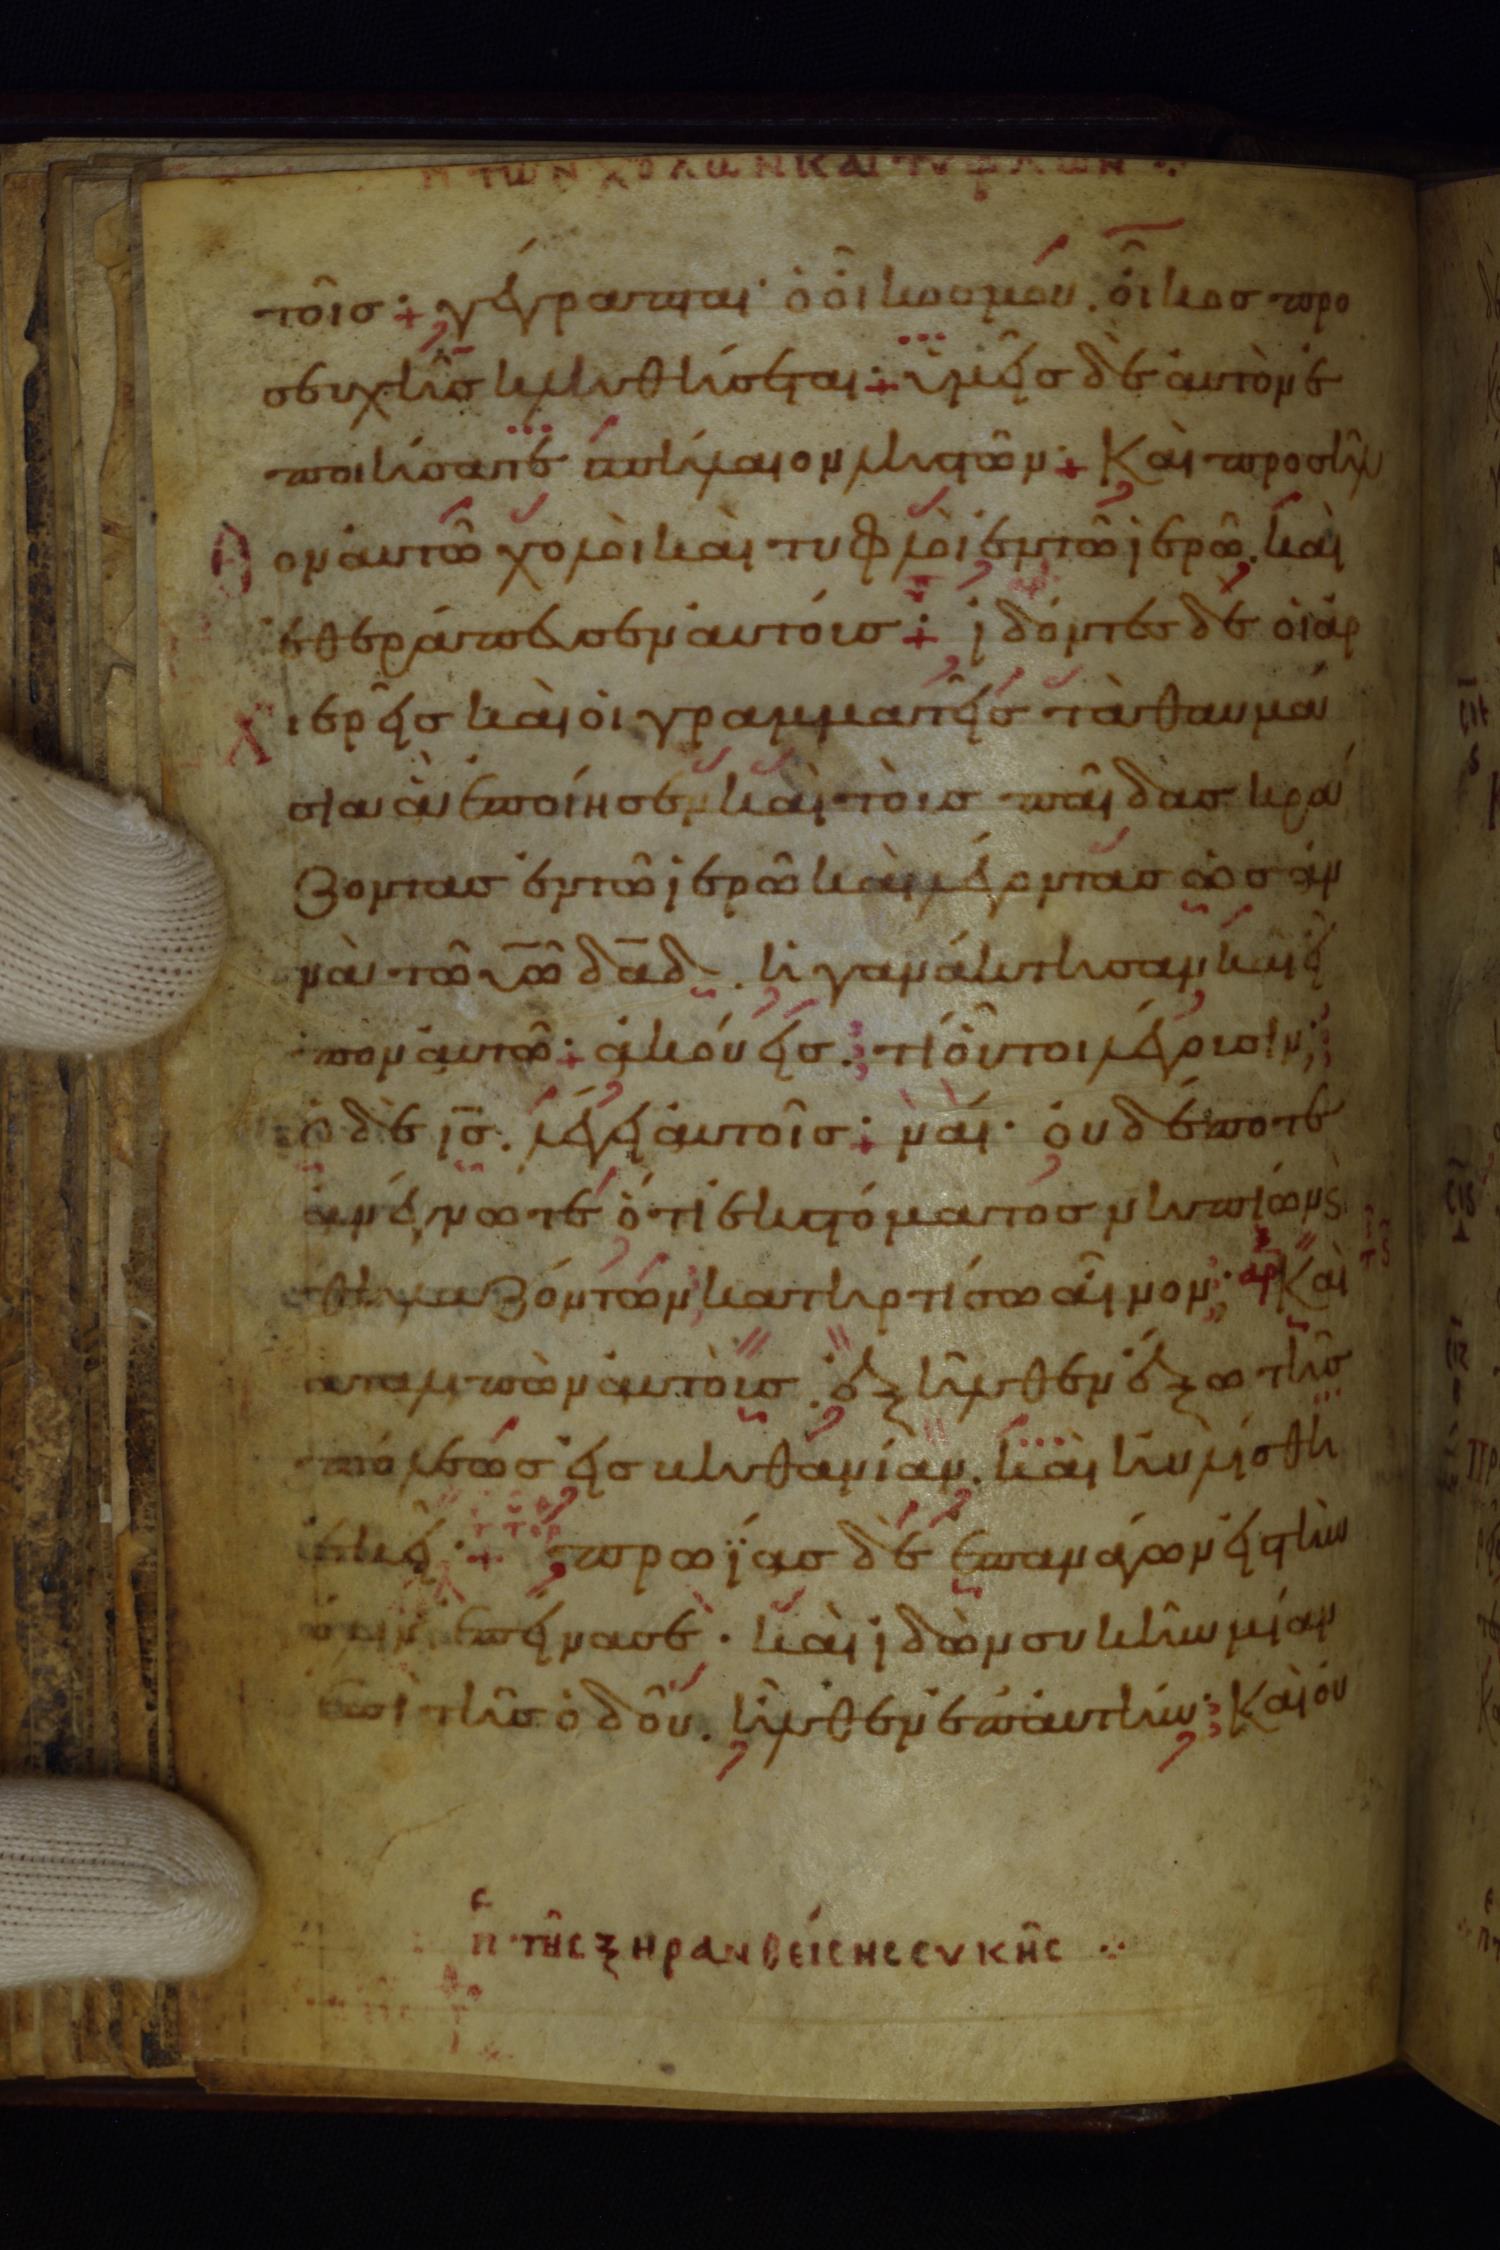 π τῶν χολῶν καὶ τυφλῶν ⁘
τοῖσ + γέγραπται· ὁ οἶκοσ μου. οἶκοσ προ
σευχῆσ κληθήσεται + ὑμεῖσ δὲ αὐτὸν ἐ
ποιήσατε σπήλαιον ληστῶν + Καὶ προσῆλ
θον αὐτῶ χολοὶ καὶ τυφλοὶ ἐν τῶ ἱερῶ. καὶ
ἐθεράπευσεν αὐτούσ + ἰδόντεσ δὲ οἱ ἀρ
χιερεῖσ καὶ οἱ γραμματεῖσ τὰ θαυμά
σια ἃ ἐποίησεν καὶ τοὺσ παῖδασ κρά
ζοντασ ἐν τῶ ἱερῶ καὶ λέγοντασ ὡσαν
νὰ τῶ υἱῶ δαδ. ἠγανάκτησαν καὶ εἶ
πον αὐτῶ + ἀκούεισ. τί οὗτοι λέγουσιν;
ὁ δὲ ισ. λέγει αὐτοῖσ + ναί· οὐδέποτε
ἀνέγνωτε ὅτι ἐκ στόματοσ νηπίων ς
θηλαζόντων κατηρτίσω αἶνον; Καὶ
καταλιπὼν αὐτοὺσ. ἐξῆλθεν ἔξω τῆσ
πόλεωσ εἰσ βηθανίαν. καὶ ηὐλίσθη
ἐκεῖ + πρωΐασ δὲ ἐπαναγων εἰσ τὴν
πόλιν ἐπείνασε· καὶ ἰδὼν συκῆν μίαν
ἐπὶ τῆσ ὁδοῦ. ἦλθεν ἐπ αὐτήν· Καὶ οὐ
π τῆς ξηρανθείσης συκῆς ⁘